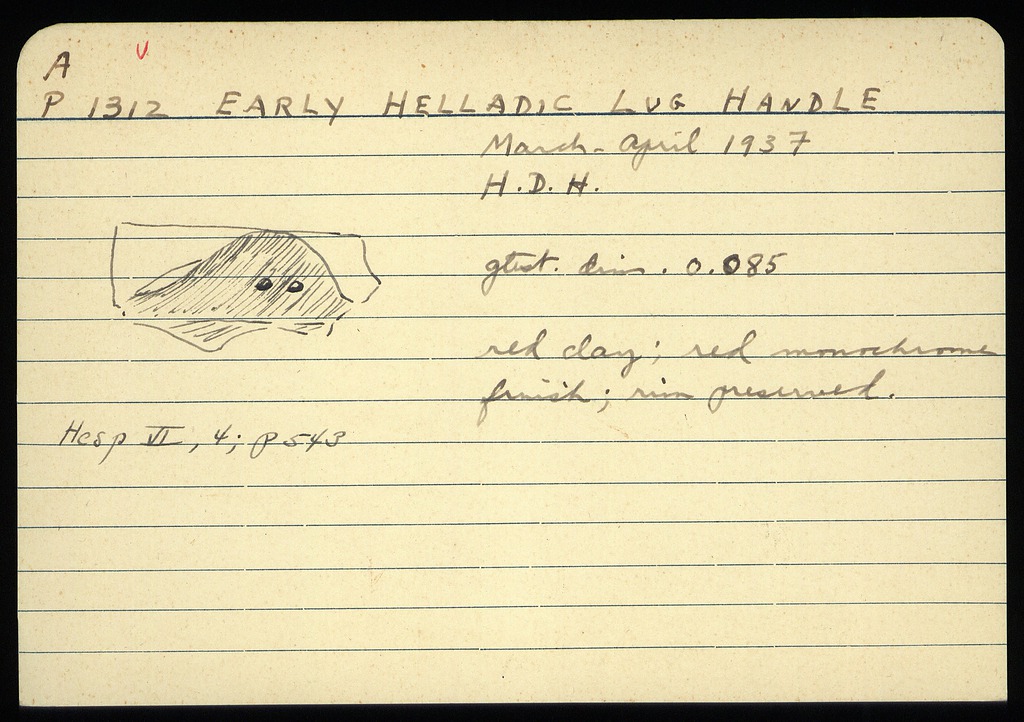 A U
P 1312 EARLY HELLADIC LUG HANDLE
March - April 1937
H.D.H.
gtest. dim. 0.085
red clay; red monochrome
finish; rim preserved.
Hesp VI, 4; p 543